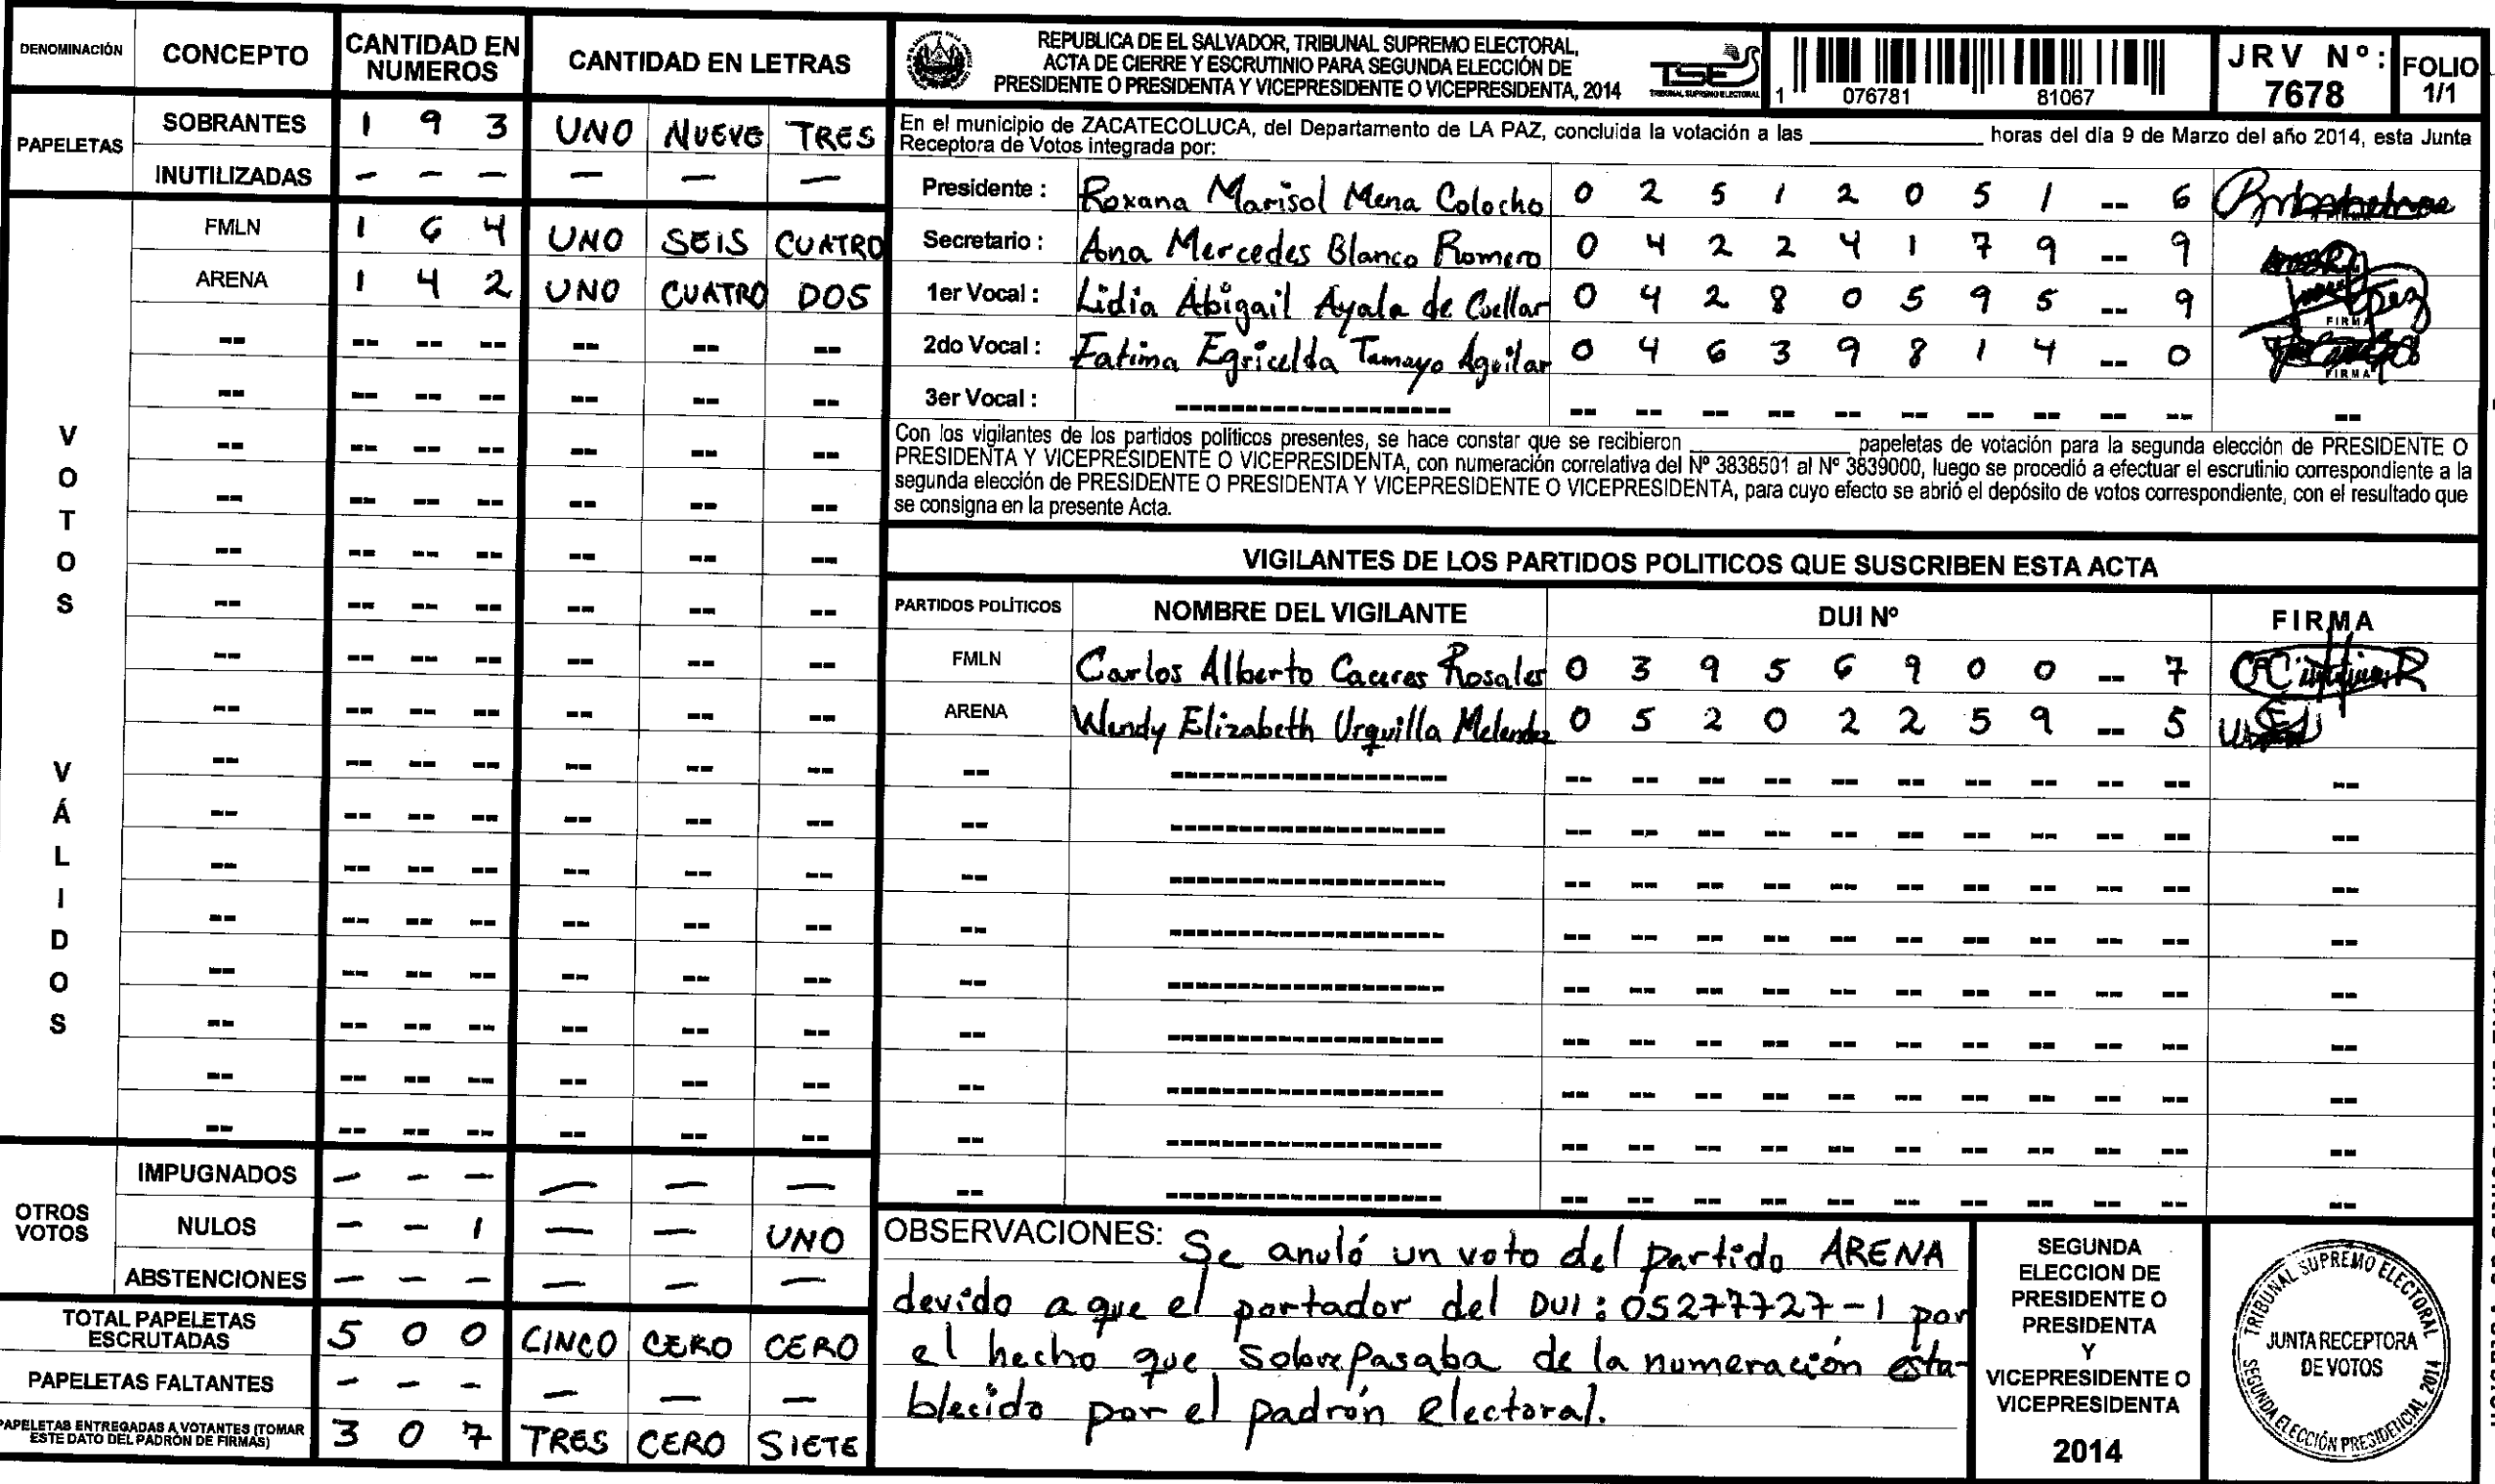 DENOMINACIÓN CONCEPTO CANTIDAD EN NUMEROS CANTIDAD EN LETRAS
PAPELETAS
SOBRANTES 1 9 3 UNO NUEVE TRES
INUTILIZADAS - - - - - -
VOTOS VÁLIDOS
FMLN 1 6 4 UNO SEIS CUATRO
ARENA 1 4 2 UNO CUATRO DOS
-- -- -- -- -- -- --
-- -- -- -- -- -- --
-- -- -- -- -- -- --
-- -- -- -- -- -- --
-- -- -- -- -- -- --
-- -- -- -- -- -- --
-- -- -- -- -- -- --
-- -- -- -- -- -- --
-- -- -- -- -- -- --
-- -- -- -- -- -- --
-- -- -- -- -- -- --
-- -- -- -- -- -- --
-- -- -- -- -- -- --
-- -- -- -- -- -- --
-- -- -- -- -- -- --
-- -- -- -- -- -- --
OTROS VOTOS
IMPUGNADOS - - - - - -
NULOS - - 1 - - UNO
ABSTENCIONES - - - - - -
TOTAL PAPELETAS ESCRUTADAS 5 0 0 CINCO CERO CERO
PAPELETAS FALTANTES - - - - - -
PAPELETAS ENTREGADAS A VOTANTES (TOMAR ESTE DATO DEL PADRÓN DE FIRMAS) 3 0 7 TRES CERO SIETE
REPUBLICA DE EL SALVADOR, TRIBUNAL SUPREMO ELECTORAL,
ACTA DE CIERRE Y ESCRUTINIO PARA SEGUNDA ELECCIÓN DE
PRESIDENTE O PRESIDENTA Y VICEPRESIDENTE O VICEPRESIDENTA, 2014
TSE
TRIBUNAL SUPREMO ELECTORAL
1 076781 81067
JRV Nº: 7678
FOLIO 1/1
En el municipio de ZACATECOLUCA, del Departamento de LA PAZ, concluida la votación a las ____________ horas del día 9 de Marzo del año 2014, esta Junta
Receptora de Votos integrada por:
Presidente : Roxana Marisol Mena Colocho 0 2 5 1 2 0 5 1 -- 6
Secretario : Ana Mercedes Blanco Romero 0 4 2 2 4 1 7 9 -- 9
1er Vocal : Lidia Abigail Ayala de Cuellar 0 4 2 8 0 5 9 5 -- 9 FIRMA
2do Vocal : Fatima Egricelda Tamayo Aguilar 0 4 6 3 9 8 1 4 -- 0 FIRMA
3er Vocal : ------------------- -- -- -- -- -- -- -- -- -- -- --
Con los vigilantes de los partidos políticos presentes, se hace constar que se recibieron ____________ papeletas de votación para la segunda elección de PRESIDENTE O
PRESIDENTA Y VICEPRESIDENTE O VICEPRESIDENTA, con numeración correlativa del Nº 3838501 al Nº 3839000, luego se procedió a efectuar el escrutinio correspondiente a la
segunda elección de PRESIDENTE O PRESIDENTA Y VICEPRESIDENTE O VICEPRESIDENTA, para cuyo efecto se abrió el depósito de votos correspondiente, con el resultado que
se consigna en la presente Acta.
VIGILANTES DE LOS PARTIDOS POLITICOS QUE SUSCRIBEN ESTA ACTA
PARTIDOS POLÍTICOS NOMBRE DEL VIGILANTE DUI Nº FIRMA
FMLN Carlos Alberto Caceres Rosales 0 3 9 5 6 9 0 0 -- 7
ARENA Wendy Elizabeth Urquilla Melendez 0 5 2 0 2 2 5 9 -- 5
-- ------------------- -- -- -- -- -- -- -- -- -- -- --
-- ------------------- -- -- -- -- -- -- -- -- -- -- --
-- ------------------- -- -- -- -- -- -- -- -- -- -- --
-- ------------------- -- -- -- -- -- -- -- -- -- -- --
-- ------------------- -- -- -- -- -- -- -- -- -- -- --
-- ------------------- -- -- -- -- -- -- -- -- -- -- --
-- ------------------- -- -- -- -- -- -- -- -- -- -- --
-- ------------------- -- -- -- -- -- -- -- -- -- -- --
-- ------------------- -- -- -- -- -- -- -- -- -- -- --
OBSERVACIONES: Se anuló un voto del partido ARENA
devido a que el portador del DUI: 05277727-1 por
el hecho que Sobrepasaba de la numeración esta-
blecido por el padrón electoral.
SEGUNDA
ELECCION DE
PRESIDENTE O
PRESIDENTA
Y
VICEPRESIDENTE O
VICEPRESIDENTA
2014
TRIBUNAL SUPREMO ELECTORAL
JUNTA RECEPTORA
DE VOTOS
SEGUNDA ELECCIÓN PRESIDENCIAL 2014